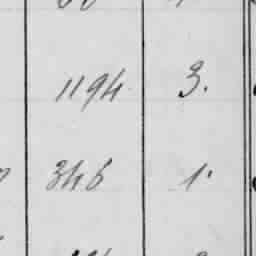 1194 3.
346 1.